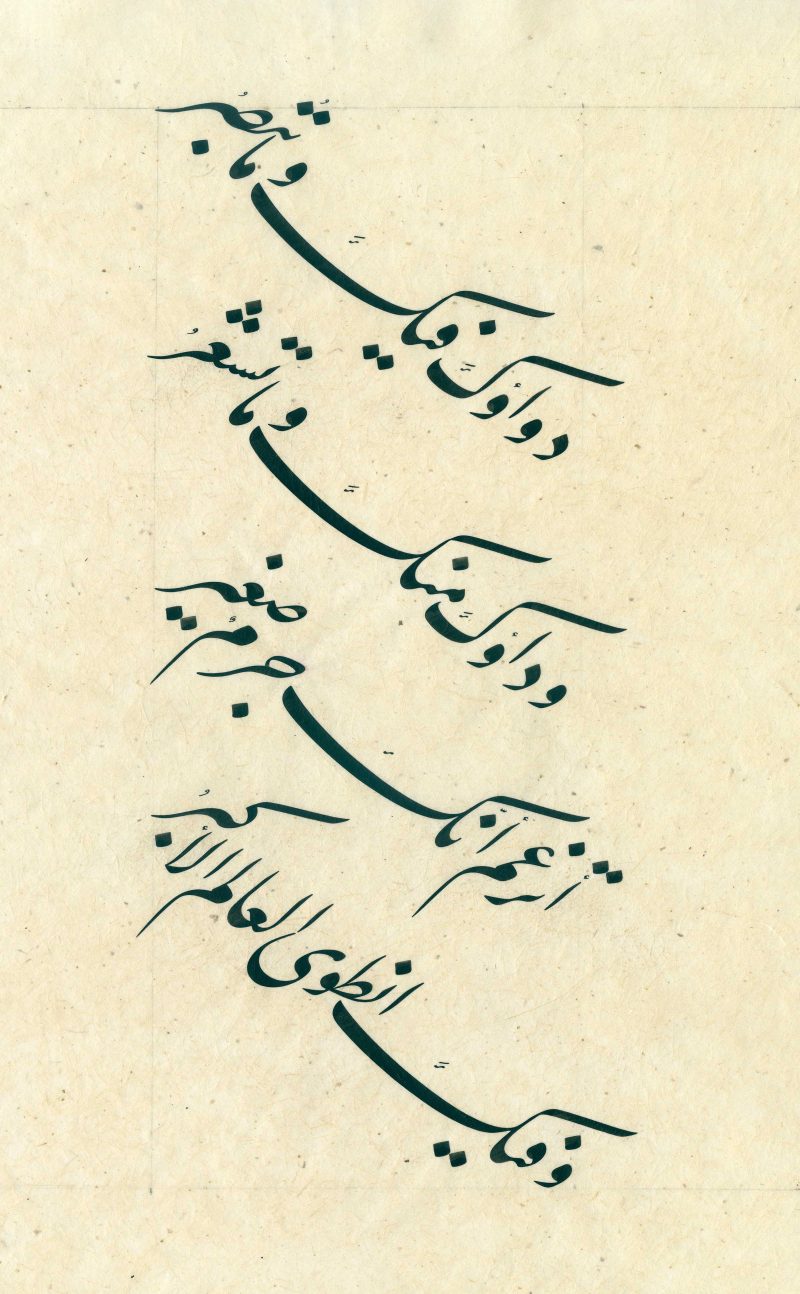 دواؤكَ فيكَ وما تُبصرُ
وداؤكَ منكَ وما تشعرُ
أتزعم أنّكَ جرمٌ صغير
وفيكَ انطوى العالم الأكبرُ